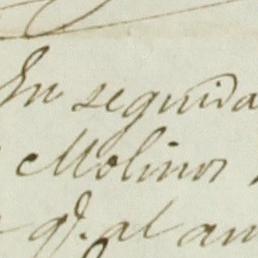 En seguida
Molinos
qe. al an